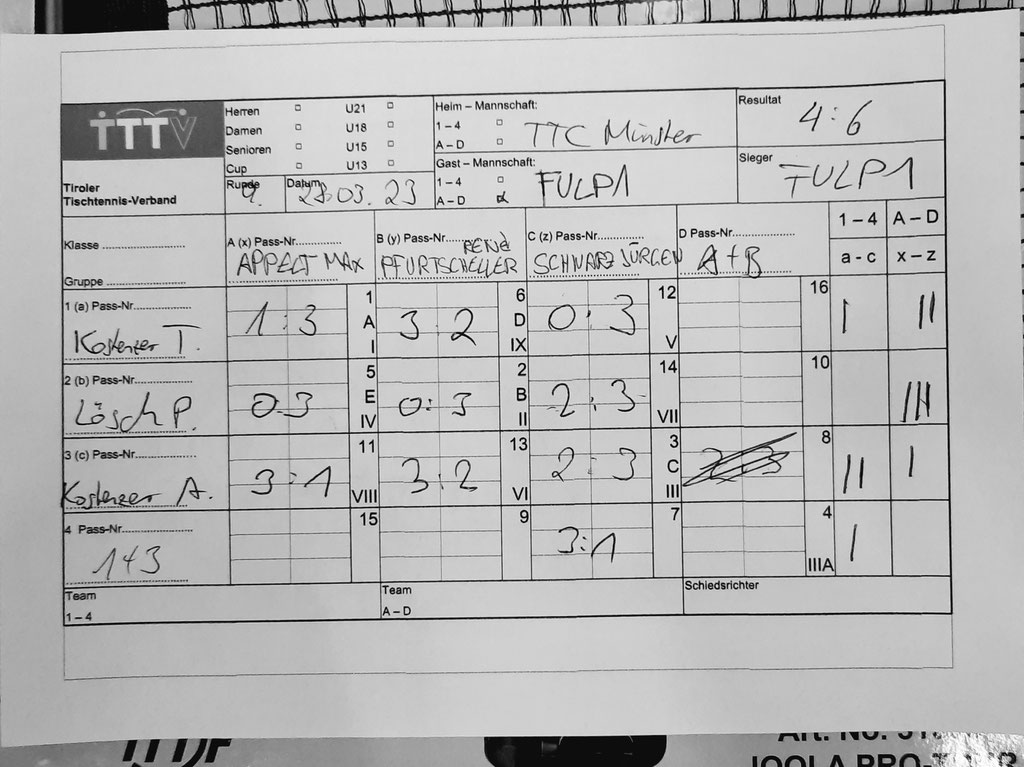 TTTV
Tiroler
Tischtennis-Verband
Herren U21
Damen U18
Senioren U15
Cup U13
Runde 9. Datum 28.03.23
Heim – Mannschaft:
1 – 4
A – D
TTC Münster
Gast – Mannschaft:
1 – 4
A – D
FULP1
Resultat
4:6
Sieger
FULP1
Klasse
Gruppe
A (x) Pass-Nr.
APPELT MAX
B (y) Pass-Nr.
RENÉ
PFURTSCHELLER
C (z) Pass-Nr.
SCHWARZ JÜRGEN
D Pass-Nr.
A+B
1 – 4 A – D
a - c x – z
1 (a) Pass-Nr.
Kostenzer T.
1:3 1 A I 3 2 6 D IX 0:3 12 V 16 I II
2 (b) Pass-Nr.
Lösch P.
0:3 5 E IV 0:3 2 B II 2:3 14 VII 10 III
3 (c) Pass-Nr.
Kostenzer A.
3:1 11 VIII 3:2 13 VI 2:3 3 C III 8 II I
4 Pass-Nr.
1+3
15 9 3:1 7 4 IIIA I
Team
1 – 4
Team
A – D
Schiedsrichter